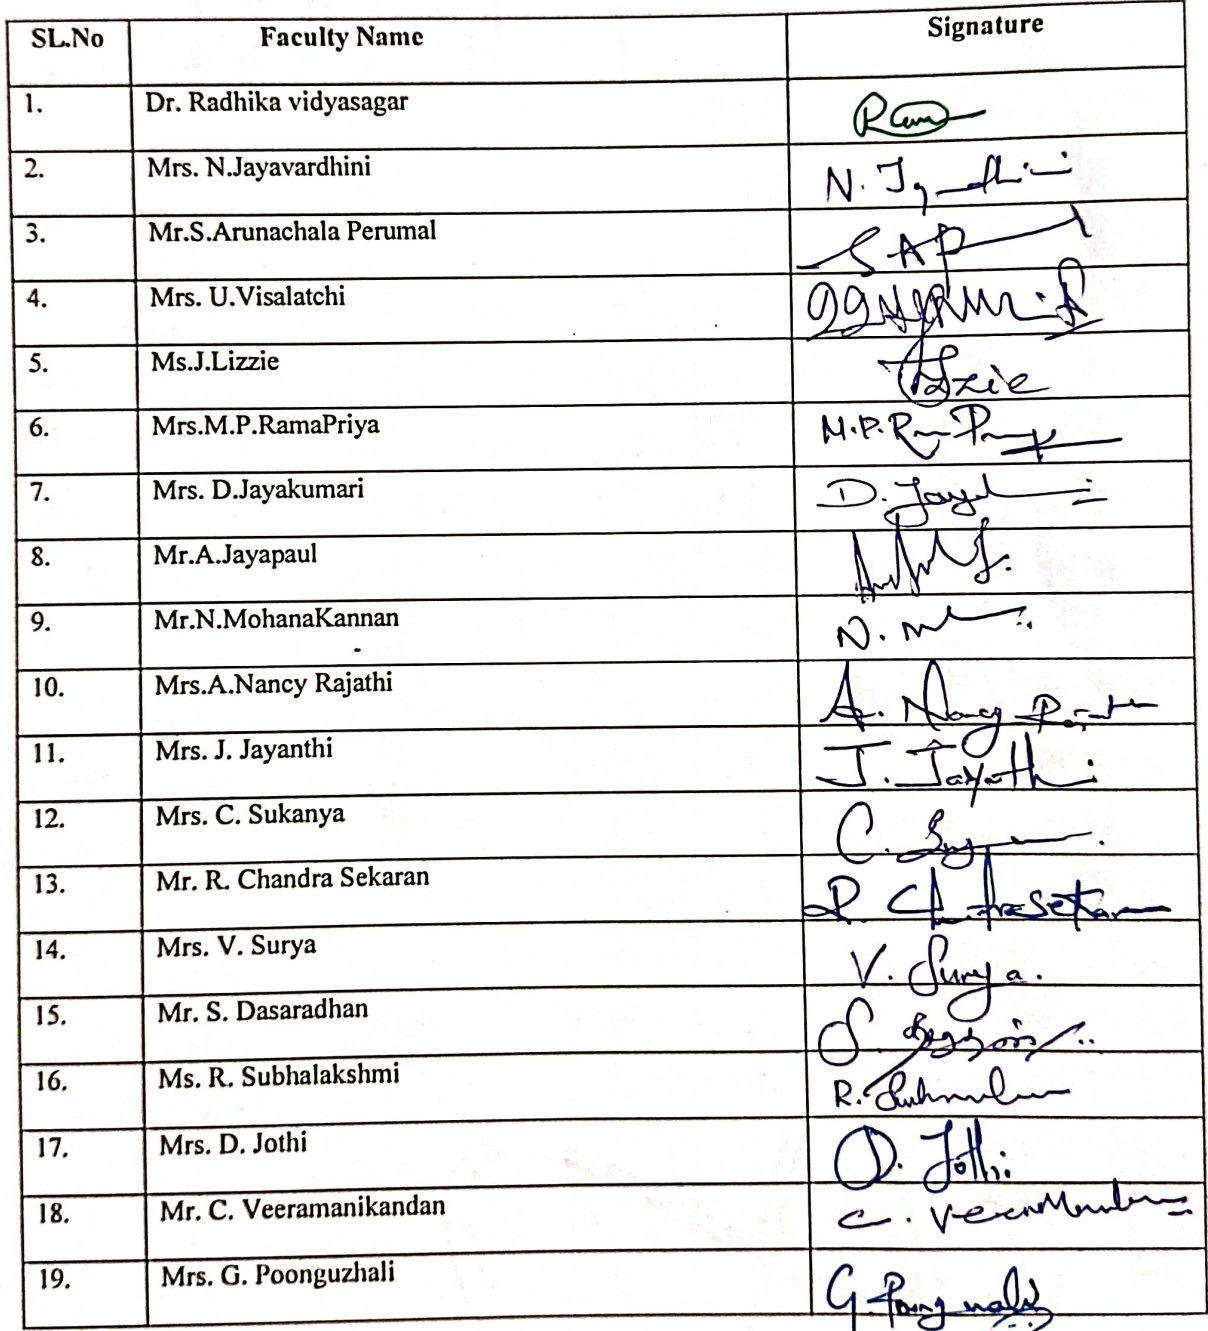 SL.No Faculty Name Signature
1. Dr. Radhika vidyasagar
2. Mrs. N.Jayavardhini
3. Mr.S.Arunachala Perumal SAP
4. Mrs. U.Visalatchi
5. Ms.J.Lizzie
6. Mrs.M.P.RamaPriya M.P.
7. Mrs. D.Jayakumari D.
8. Mr.A.Jayapaul
9. Mr.N.MohanaKannan N.
10. Mrs.A.Nancy Rajathi A. Nancy
11. Mrs. J. Jayanthi J.
12. Mrs. C. Sukanya C.
13. Mr. R. Chandra Sekaran R.
14. Mrs. V. Surya V. Surya.
15. Mr. S. Dasaradhan S.
16. Ms. R. Subhalakshmi R.
17. Mrs. D. Jothi D. Jothi
18. Mr. C. Veeramanikandan C.
19. Mrs. G. Poonguzhali G.